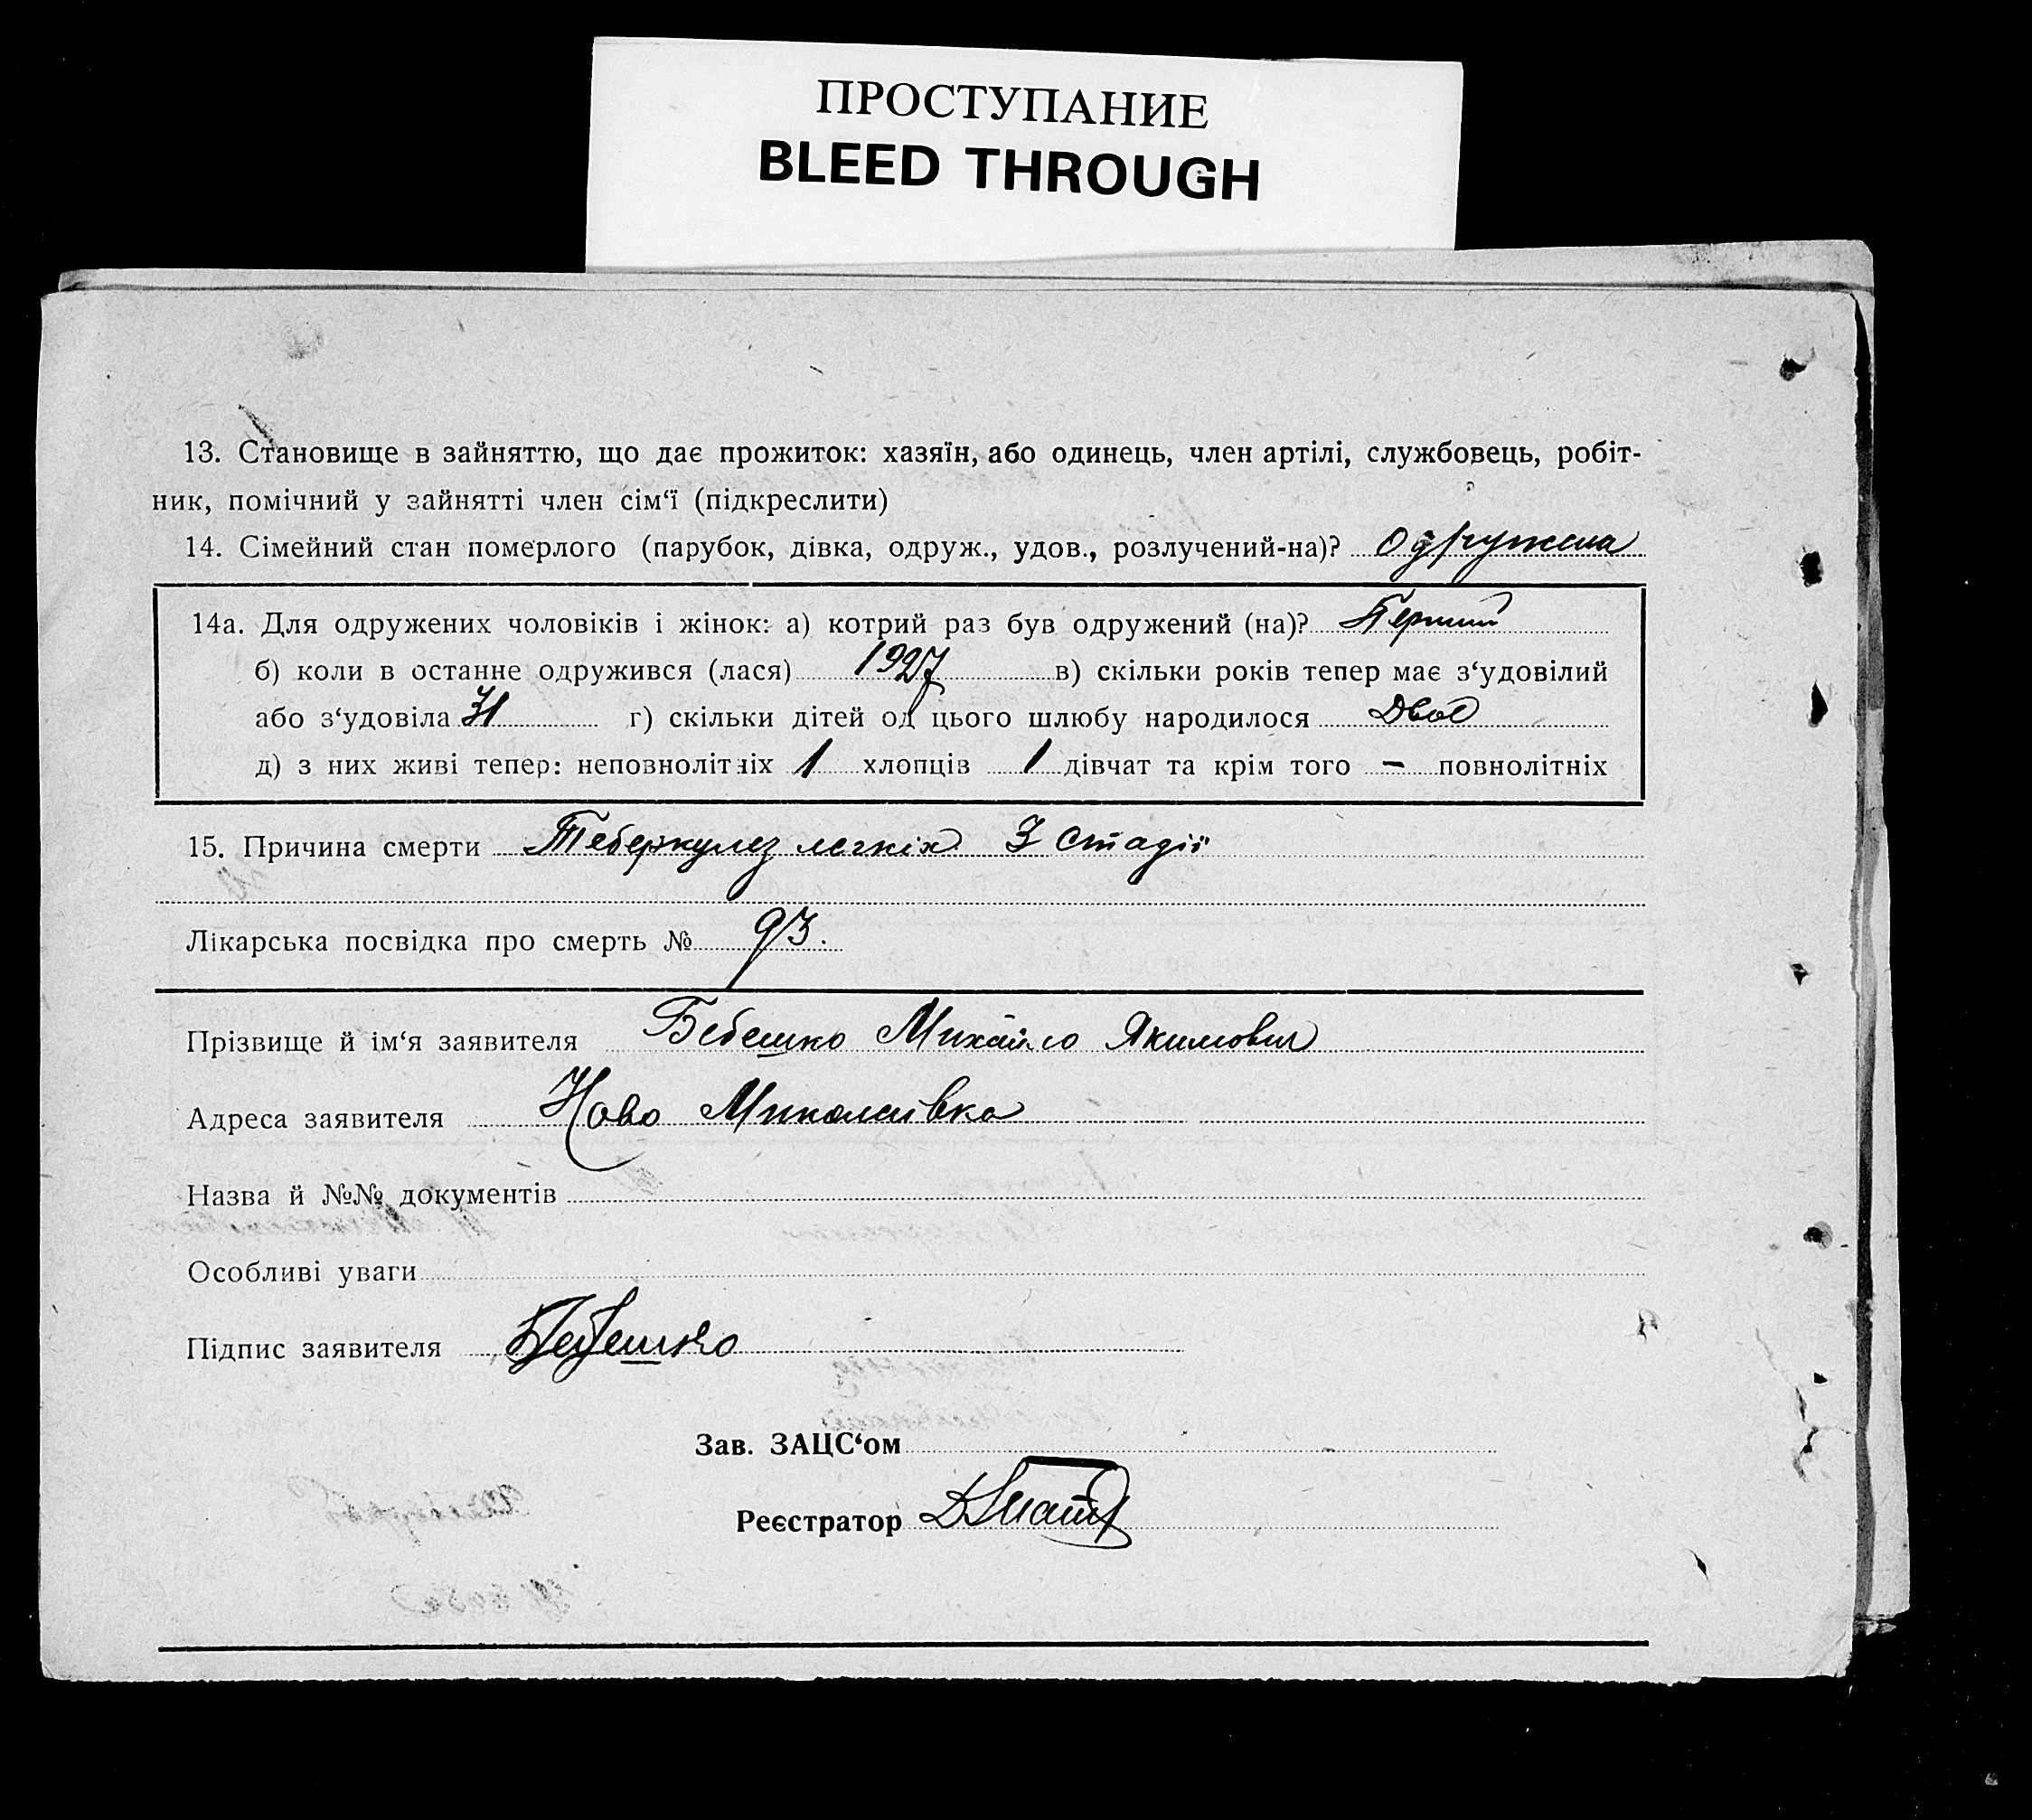 ПРОСТУПАНИЕ
BLEED THROUGH
13. Становище в зайняттю, що дає прожиток: хазяїн, або одинець, член артілі, службовець, робіт-
ник, помічний у зайнятті член сім‘ї (підкреслити)
14. Сімейний стан померлого (парубок, дівка, одруж., удов., розлучений-на)? Одружена
14а. Для одружених чоловіків і жінок: а) котрий раз був одружений (на)? Перший
б) коли в останне одружився (лася) 1927 в) скільки років тепер має з‘удовілий
або з‘удовіла 31 г) скільки дітей од цього шлюбу народилося Двое
д) з них живі тепер: неповнолітніх 1 хлопців 1 дівчат та крім того – повнолітніх
15. Причина смерти Теберкулез легкіх 3 стадії
Лікарська посвідка про смерть № 93.
Прізвище й ім‘я заявителя Бебешко Михайло Якимович
Адреса заявителя Ново Миколаївка
Назва й №№ документів
Особливі уваги
Підпис заявителя Бебешко
Зав. ЗАЦС‘ом
Реєстратор